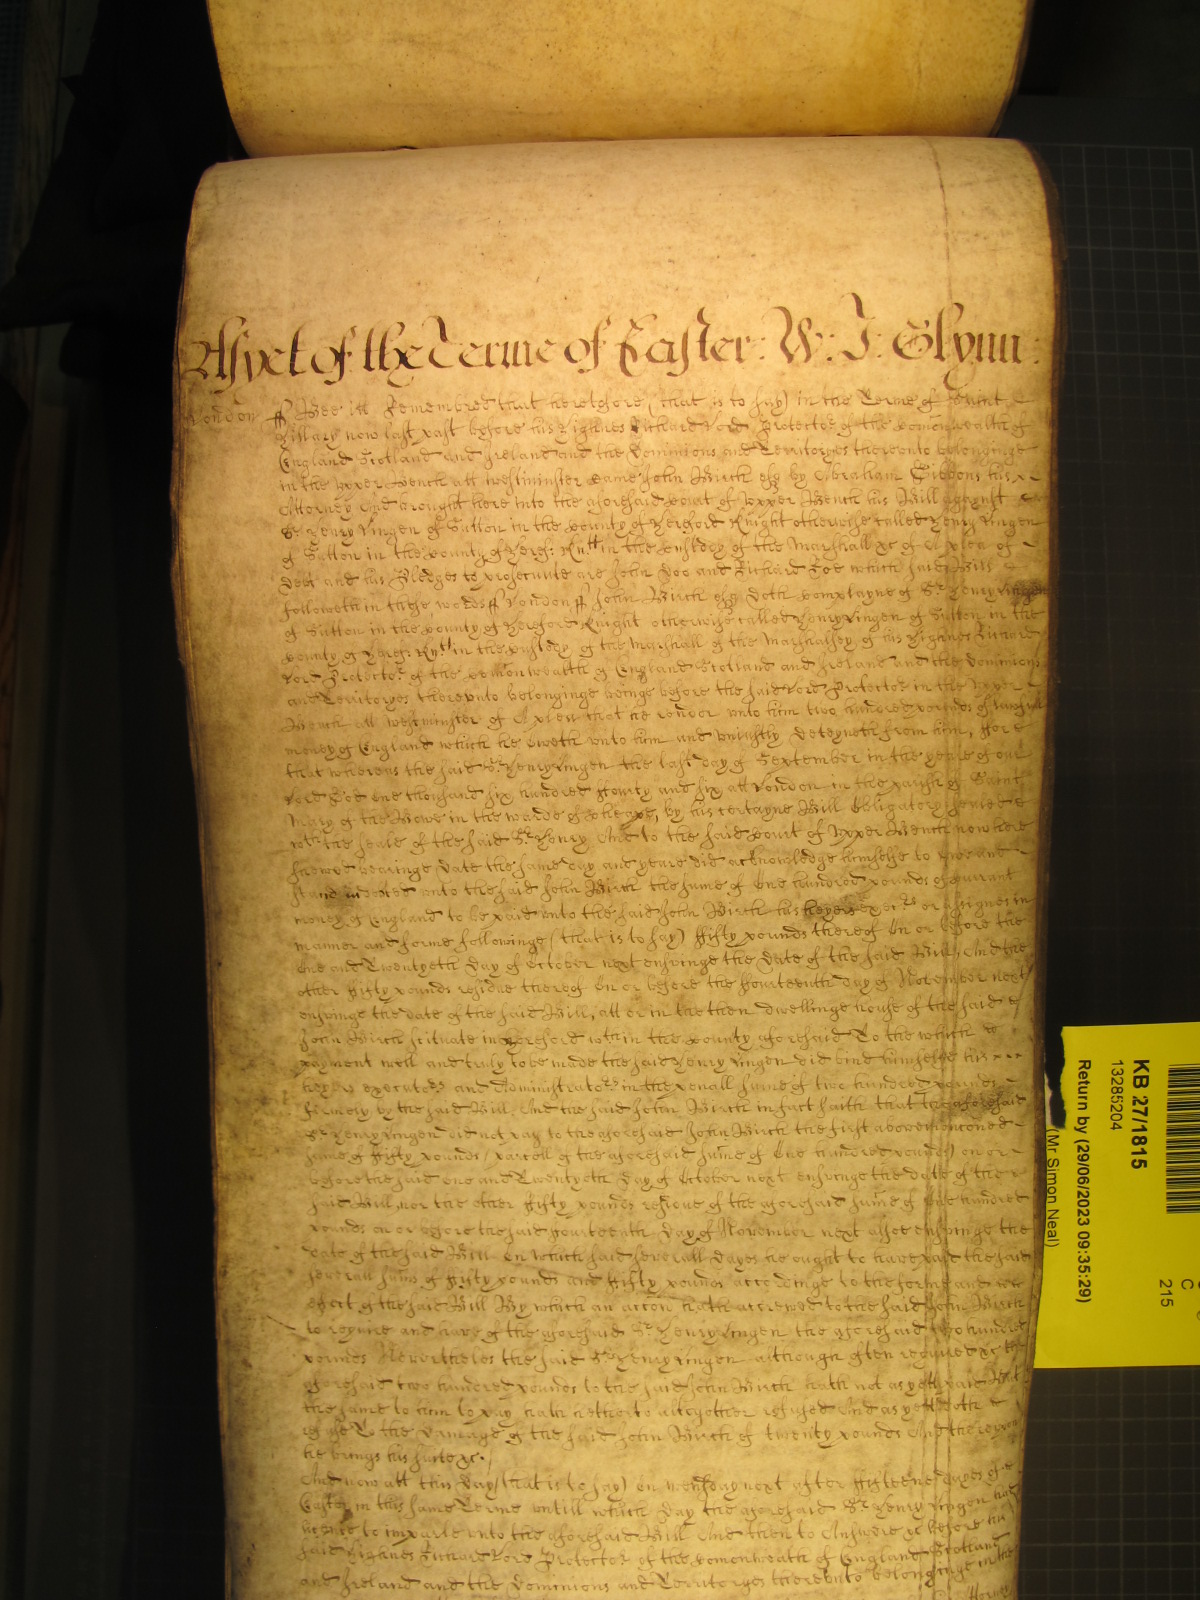 As yet of the Terme of Easter : W : J : Glynn :
London ff Bee itt Remembred that heretofore (that is to say) in the Terme of Saint
Hillary now last past before his Highnes Richard Lord Protector of the Comonwealth of
England Scotland and Ireland and the Dominions and Territoryes thereunto belonginge
in the Upper Bench att Westminster Came John Birch esq by Abraham Gibbons his
Attorney And brought here into the aforesaid Court of Upper Bench his Bill agaynst
Sr. Henry Lingen of Sutton in the County of Hereford Knight otherwise called Henry Lingen
of Sutton in the County of Heref: Knt in the Custody of the Marshall &c of A plea of
Debt and his Pledges to prosecute are John Doo and Richard Roe which said Bill
followeth in these words ff London ff John Birch esq doth Complayne of Sr. Henry Lingen
of Sutton in the County of Hereford Knight otherwise called Henry Lingen of Sutton in the
County of Heref: Knt in the Custody of the Marshall of the Marshalsey of his Highnes Richard
Lord Protector of the Comonwealth of England Scotland and Ireland and the Dominions
and Territoryes thereunto belonginge beinge before the said Lord Protector in the Upper
Bench att Westminster of A plea that he render unto him two hundred pounds of lawfull
money of England which he oweth unto him and uniustly deteyneth from him, ffor
that whereas the said Sr. Henry Lingen the last day of September in the yeare of our
Lord God one thousand six hundred ffourty and six att London in the parish of Saint
Mary of the Bowe in the warde of Cheape, by his certayne Bill Obligatory sealed
with the seale of the said Sr. Henry And to the said Court of Upper Bench now here
shewed bearinge date the same day and yeare did acknowledge himselfe to owe and
stand indebted unto the said John Birch the sume of One hundred pounds of Currant
money of England to be paid unto the said John Birch his heyers execrs or assignes in
manner and forme followinge (that is to say) ffifty pounds thereof on or before the
One and Twentyeth day of October next ensuinge the date of the said Bill, And the
other ffifty pounds residue thereof on or before the ffourteenth day of November next
ensuinge the date of the said Bill, att or in the then dwellinge house of the said
John Birch scituate in Hereford within the County aforesaid To the which
payment well and truly to be made the said Henry Lingen did bind himselfe his
heyers executors and Administrators in the penall sume of two hundred pounds
firmely by the said Bill, And the said John Birch in fact saith that the aforesaid
Sr. Henry Lingen did not pay to the aforesaid John Birch the first abovementioned
sume of ffifty pounds (parcell of the aforesaid sume of One hundred pounds) on or
before the said one and Twentyeth day of October next ensuinge the date of the
said Bill, nor the other ffifty pounds residue of the aforesaid sume of One hundred
pounds on or before the said ffourteenth day of November next after ensuinge the
date of the said Bill On which said severall dayes he ought to have paid the said
severall sums of ffifty pounds and ffifty pounds accordinge to the forme and
effect of the said Bill By which an accon hath accrewed to the said John Birch
to require and have of the aforesaid Sr. Henry Lingen the aforesaid two hundred
pounds Neverthelesse the said Sr. Henry Lingen although often required &c the
aforesaid two hundred pounds to the said John Birch hath not as yett paid But
the same to him to pay hath hitherto altogether refused And as yett doth
refuse To the damage of the said John Birch of twenty pounds And thereupon
he brings his suite &c.
And now att this day (that is to say) On Wensday next after ffifteene dayes of
Easter in this same Terme untill which day the aforesaid Sr. Henry Lingen had
licence to imparle unto the aforesaid Bill And then to Answere &c before his
said Highnes Richard Lord Protector of the Comonwealth of England Scotland
and Ireland and the Dominions and Territoryes thereunto belonginge in the
KB 27/1815
13285204
Return by (29/06/2023 09:35:29)
(Mr Simon Neal)
C
215